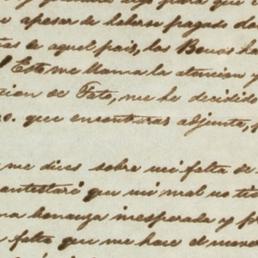 apesar de haberse pagado do
de aquel pais, los Bonos ha
Esto me llama la atencion y
me he decidido
que encontrarás adjunto,
me dices sobre mi falta de
contestaré que mi mal no ti
na bonanza inesperada y p
falta que me hace el nume